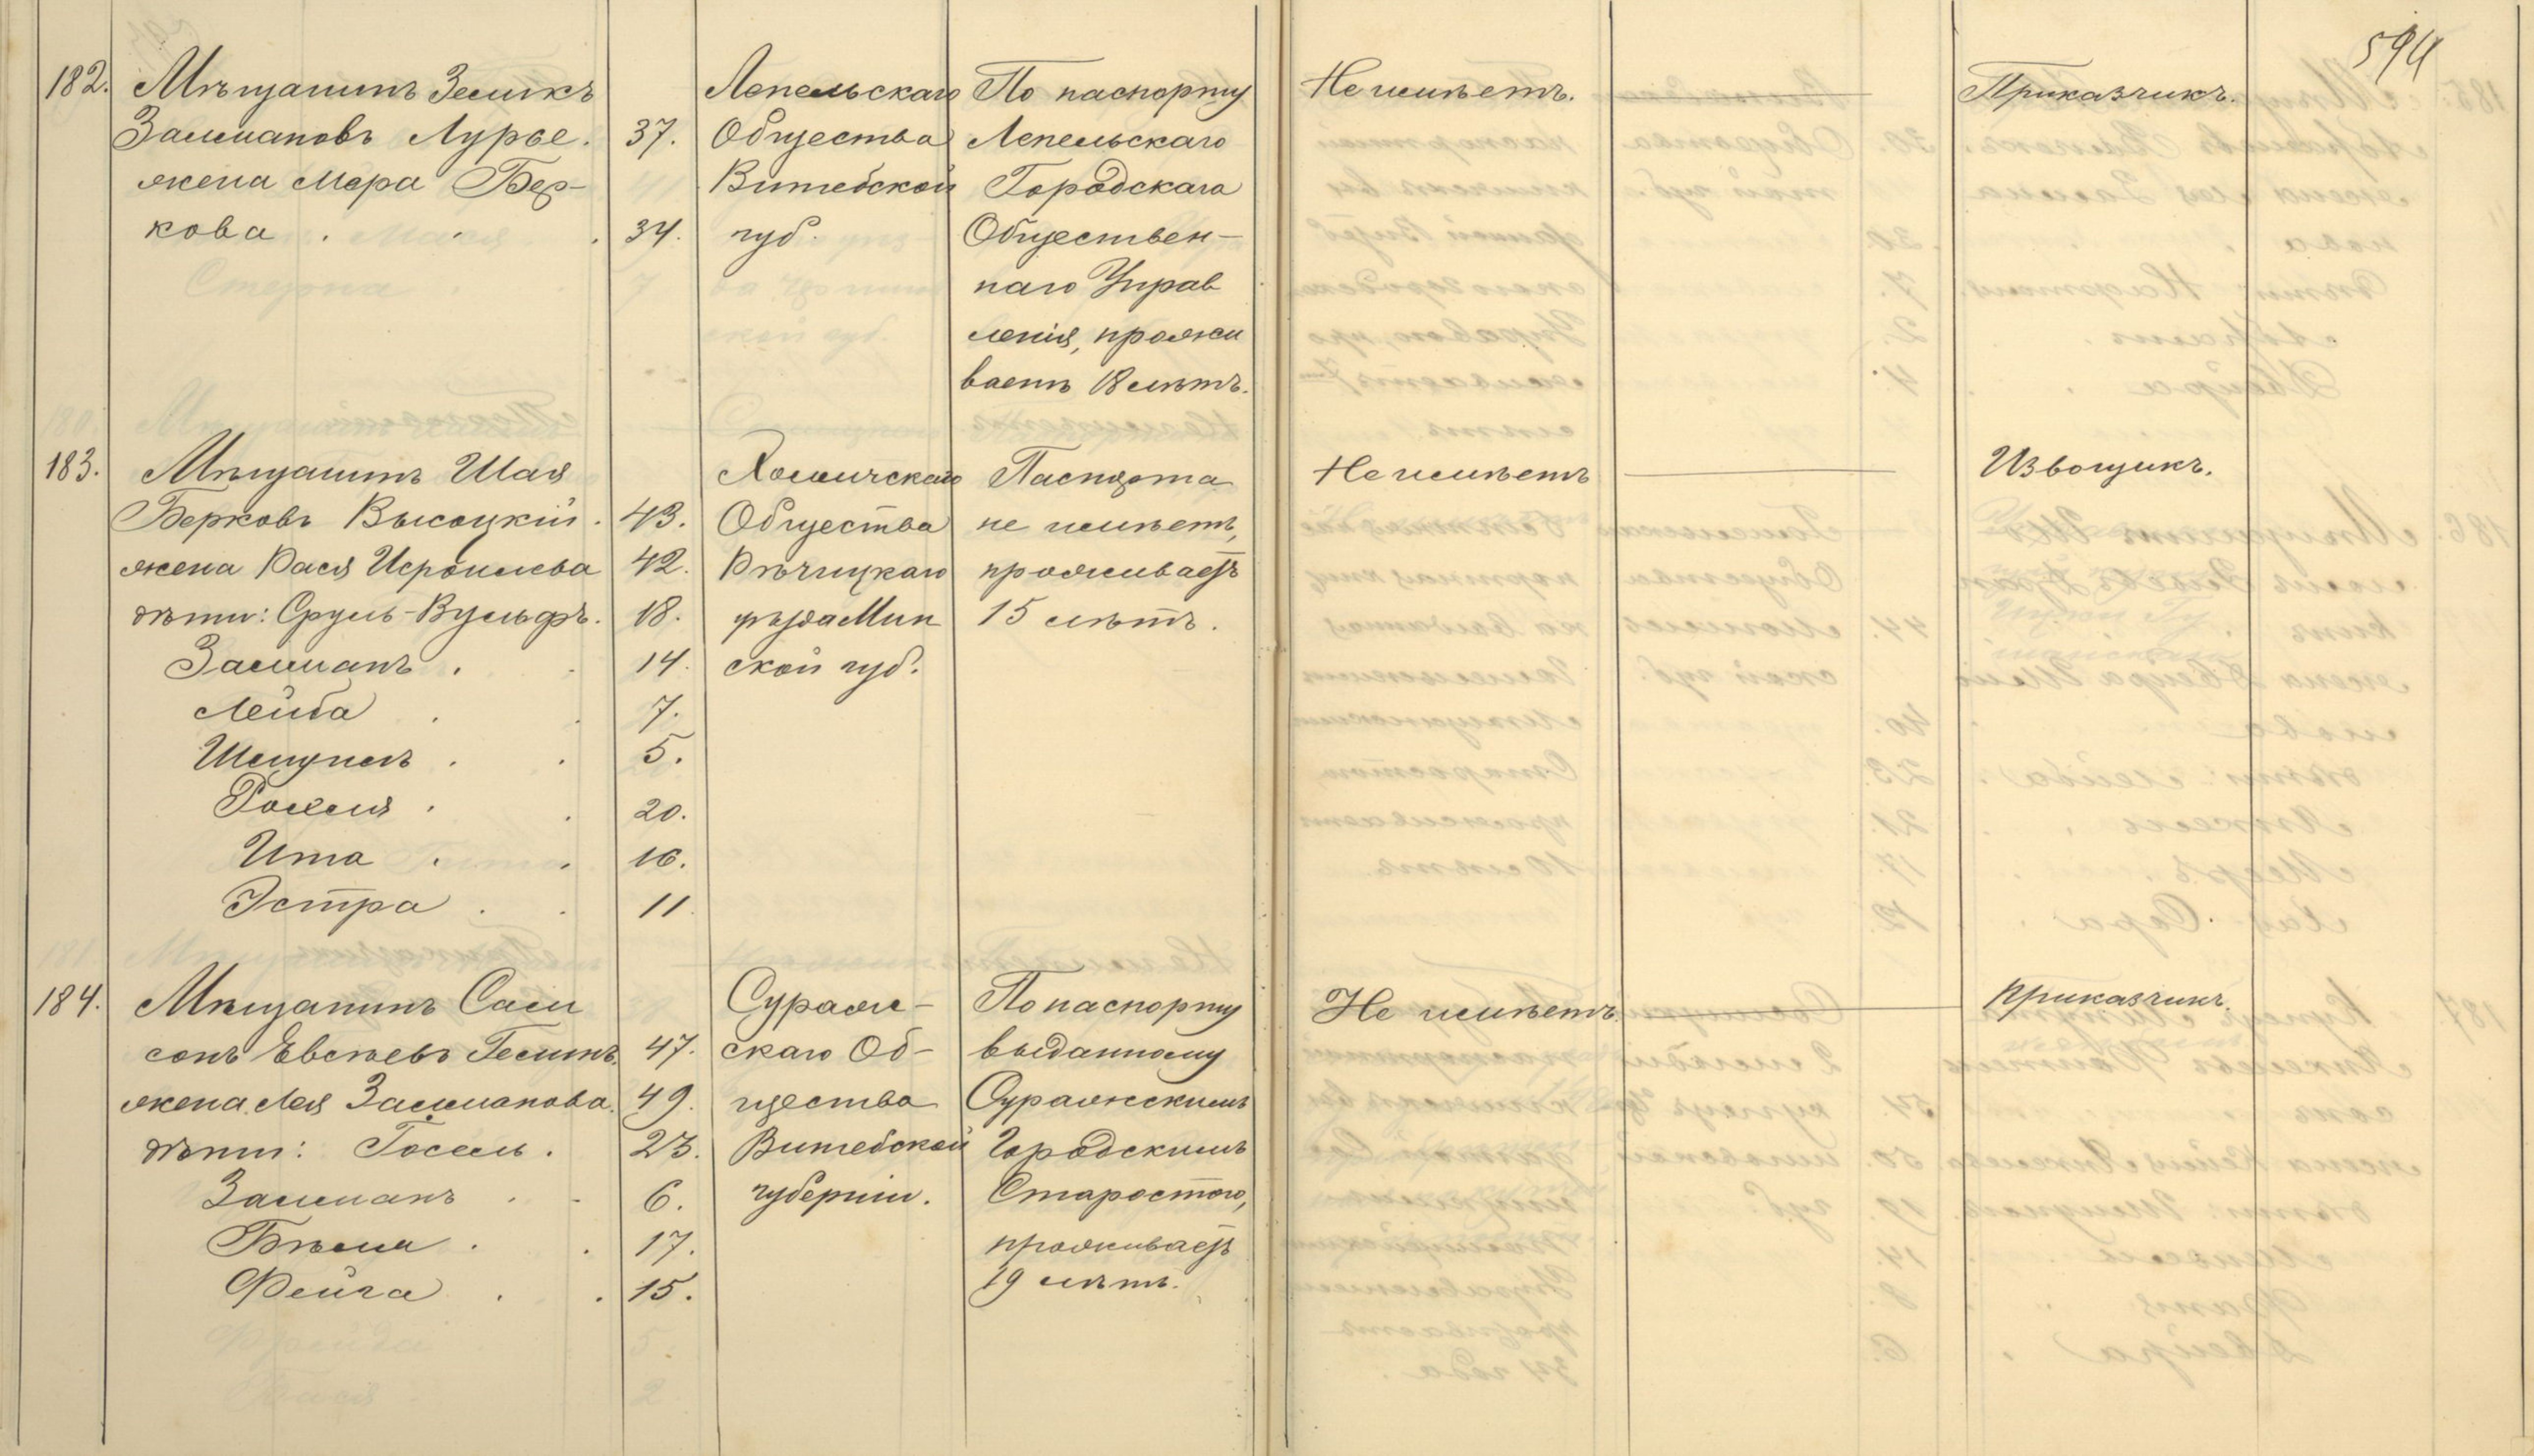 594
182. Мѣщанинъ Зеликъ
Залмановъ Лурье. 37.
жена Мера Бер-
кова . . . 34.
Лепельскаго
Общества
Витебской
губ.
По паспорту
Лепельскаго
Городскаго
Обществен-
наго Управ
ленія, прожи
ваетъ 18 лѣтъ.
Не имѣетъ.
Приказчикъ.
183. Мѣщанинъ Шая
Берковъ Высоцкій. 43.
жена Рася Исроилева 42.
дѣти: Сруль-Вульфъ. 18.
Залманъ . . 14.
Лейба . . 7.
Шмуилъ . . 5.
. . 20.
Ита . . 16.
Эстра . . 11.
Холмичскаго
Общества
Рѣчицкаго
уѣзда Мин
ской губ.
Паспорта
не имѣетъ,
проживаетъ
15 лѣтъ.
Не имѣетъ
Извощикъ.
184. Мѣщанинъ Сам
сонъ Евсѣевъ 47.
жена Лея Залманова. 49.
дѣти: Іосель. 23.
Залманъ . . 6.
Бѣла . . 17.
Фейга . . 15.
Сураж-
скаго Об-
щества
Витебской
губерніи.
По паспорту
выданному
Суражскимъ
Городскимъ
Старостою,
проживаетъ
19 лѣтъ.
Не имѣетъ.
Приказчикъ.